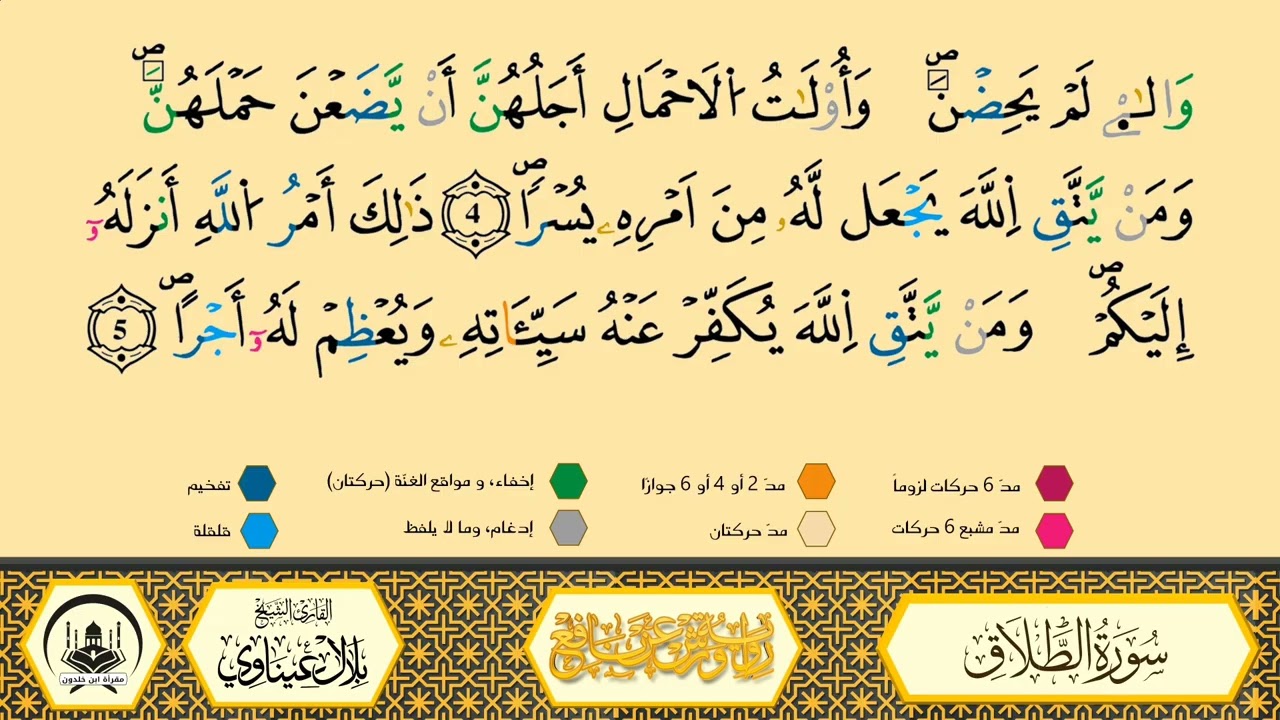 وَالَٰٓـِٔے لَمْ يَحِضْنَۖ وَأُوْلَٰتُ اُ۬لَاحْمَالِ أَجَلُهُنَّ أَنْ يَّضَعْنَ حَمْلَهُنَّۖ
وَمَنْ يَّتَّقِ اِ۬للَّهَ يَجْعَل لَّهُۥ مِنَ اَمْرِهِۦ يُسْراًۖ 4 ذَٰلِكَ أَمْرُ اُ۬للَّهِ أَنزَلَهُۥٓ
إِلَيْكُمْۖ وَمَنْ يَّتَّقِ اِ۬للَّهَ يُكَفِّرْ عَنْهُ سَيِّـَٔاتِهِۦ وَيُعْظِمْ لَهُۥٓ أَجْراًۖ 5
مدّ 6 حركات لزوماً مدّ 2 أو 4 أو 6 جوازًا إخفاء، و مواقع الغنّة (حركتان) تفخيم
مدّ مشبع 6 حركات مدّ حركتان إدغام، وما لا يلفظ قلقلة
سُورَةُ الطَّلَاقِ
رواية ورش عن نافع
القارئ الشيخ
بلال عيناوي
مقرأة ابن خلدون